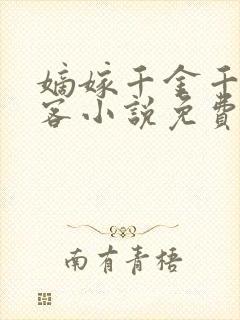 嫡嫁千金千
客小說免費
南有青梧